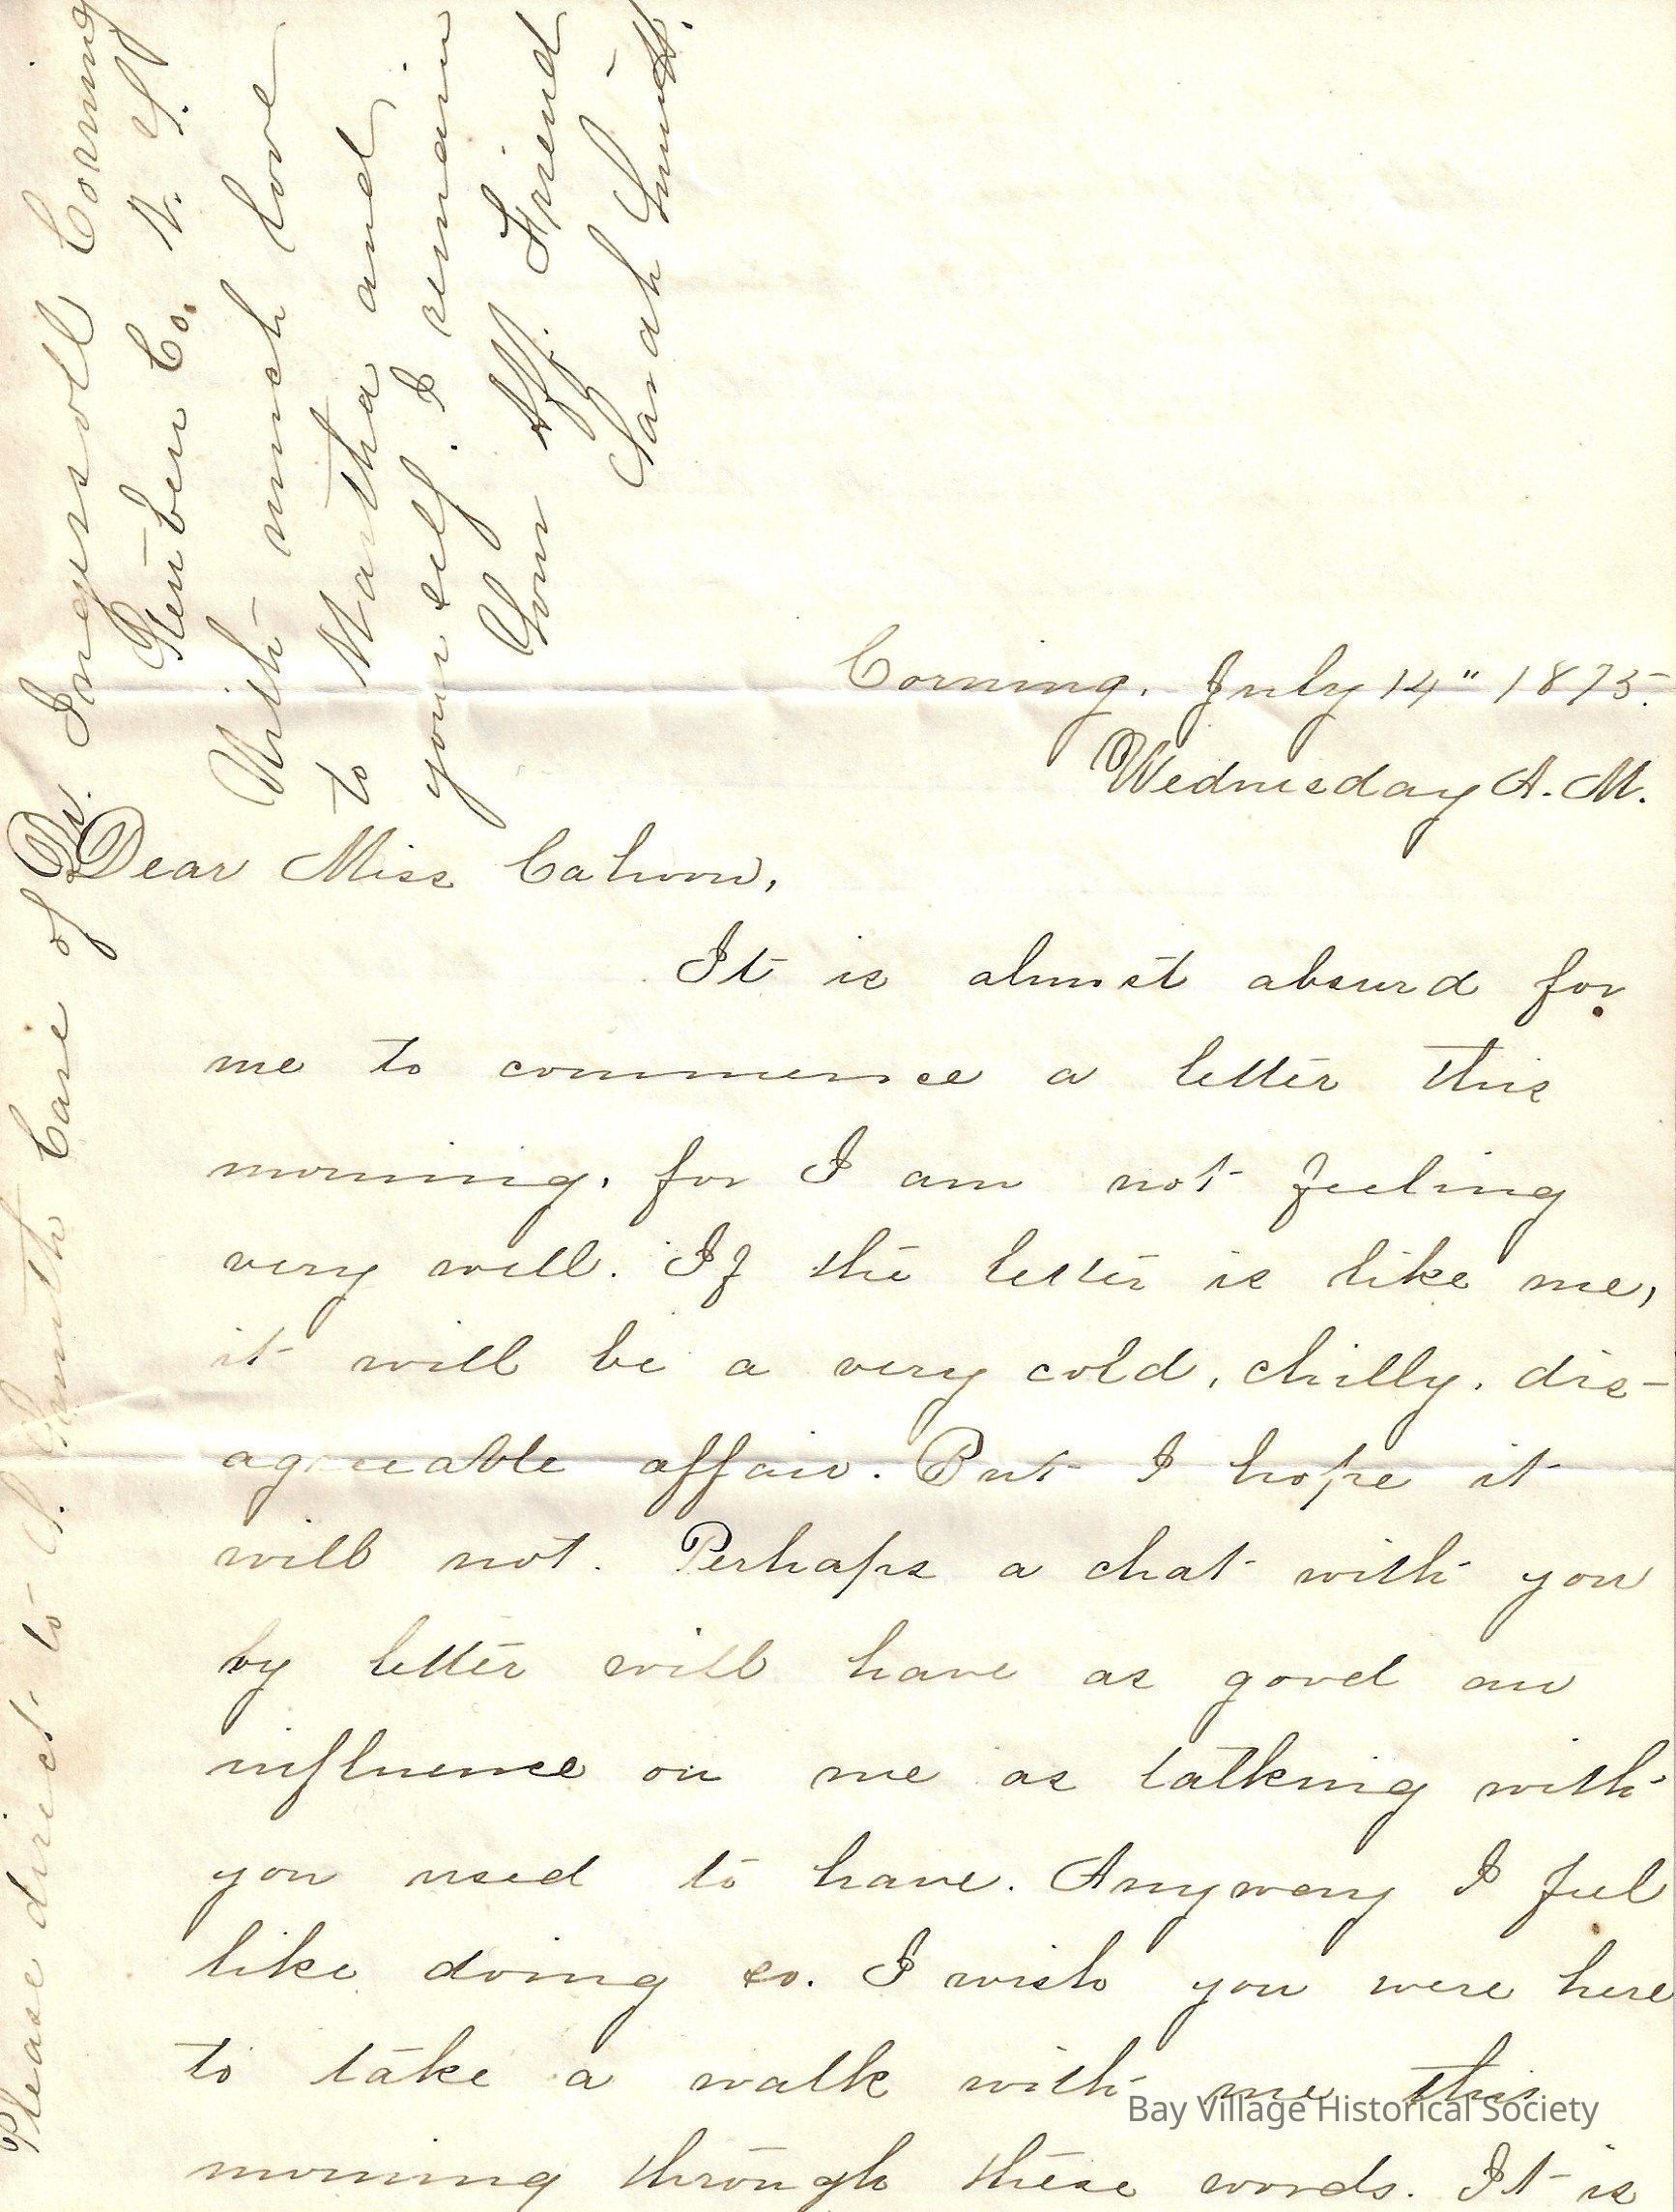 Corning, July 14" 1875.
Wednesday A.M.
Dear Miss Cahoon,
It is almost absurd for
me to commence a letter this
morning, for I am not feeling
very well. If the letter is like me,
it will be a very cold, chilly, dis-
agreeable affair. But I hope it
will not. Perhaps a chat with you
by letter will have as good an
influence on me as talking with
you used to have. Anyway I feel
like doing so. I wish you were here
to take a walk with me this
morning through these words. It is
Please direct to S. Smith Care of Dr. Ingersoll Corning
Steuben Co. N. Y.
With much love
to Martha and
yourself. I remain
Your Aff. Friend
Sarah Smith.
Bay Village Historical Society